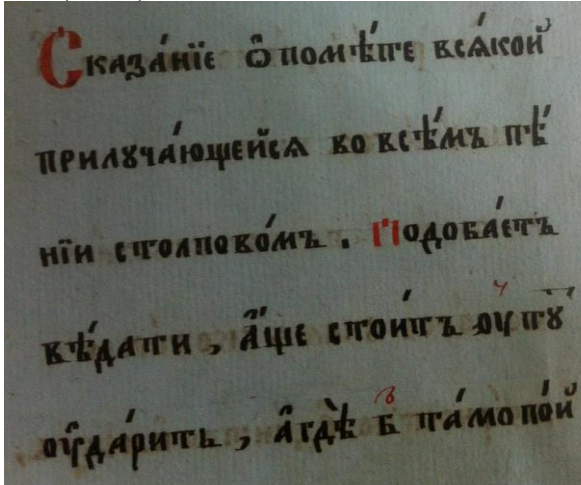 Сказа́нїе ѡ҆ помѣ́те всѧ́кой
прилꙋча́ющейсѧ во всѣ́мъ пѣ́
нїи столпово́мъ . Подоба́етъ
вѣ́дати , а҆́ще стои́тъ ꙋ тꙋ
оу҆да́рить , а҆ гдѣ̀ в та́мо по́й